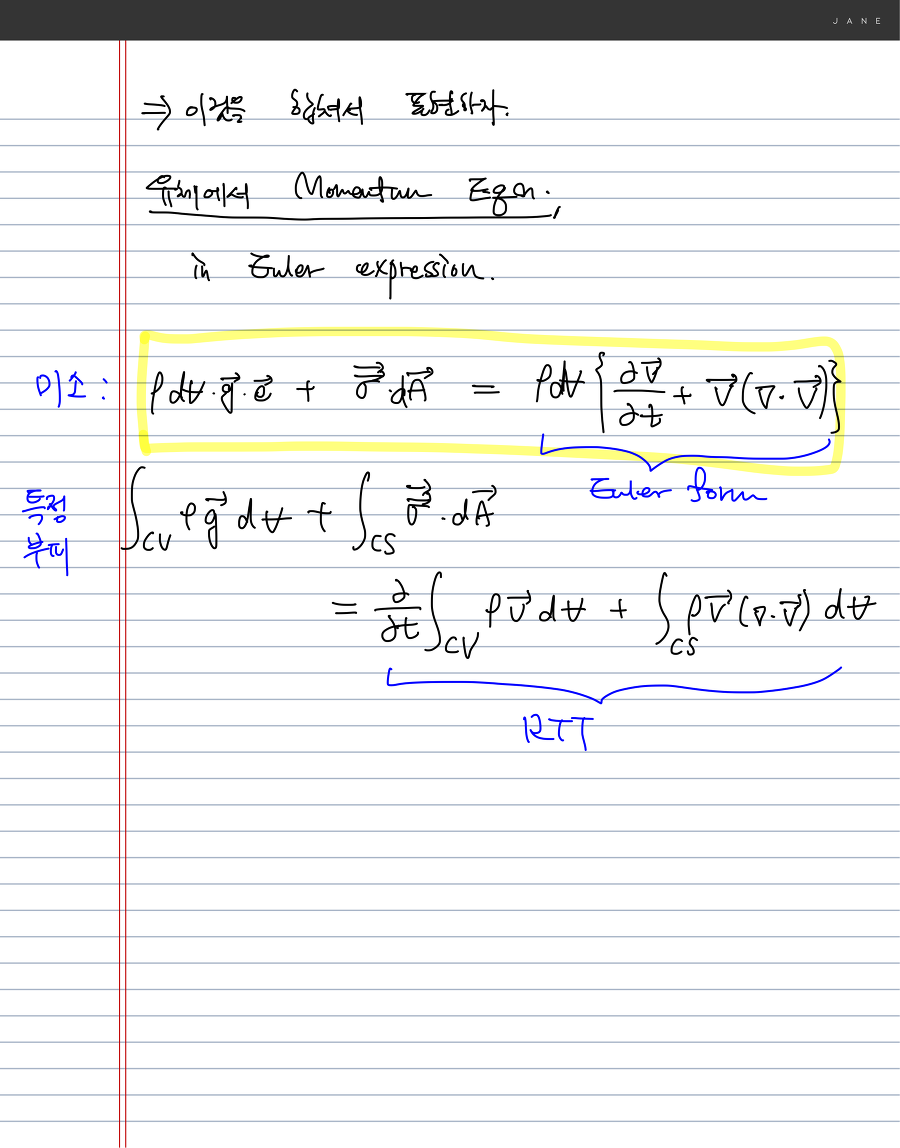 JANE
⇒ 이것을 합쳐서 표현하자.
유체에서 Momentum Eqn.,
in Euler expression.
미소 : ρdV·g⃗·e⃗ + σ⃗⃗·dA⃗ = ρdV{∂V⃗/∂t + V⃗(∇·V⃗)}
Euler form
특정 부피 ∫_CV ρg⃗ dV + ∫_CS σ⃗⃗·dA⃗
= ∂/∂t ∫_CV ρV⃗ dV + ∫_CS ρV⃗(∇·V⃗) dV
RTT